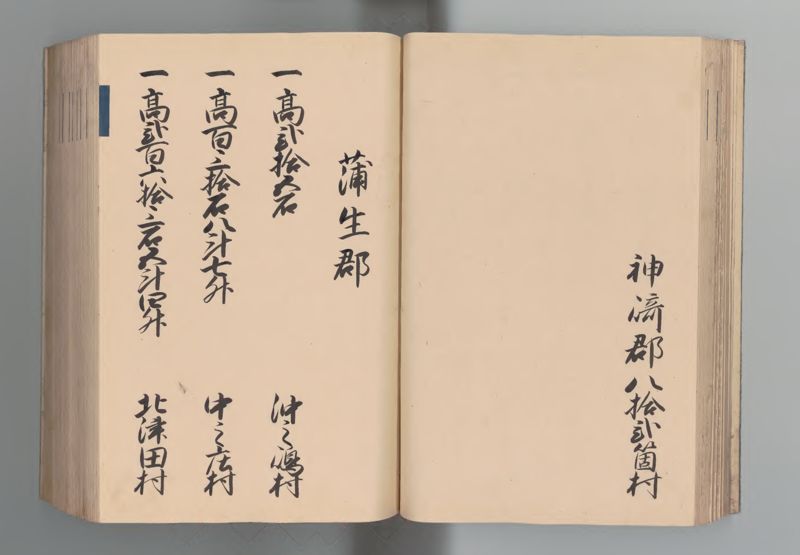 神崎郡八拾弐箇村
蒲生郡
一高弐拾五石 沖之嶋村
一高百三拾石八斗七升 中之庄村
一高弐百六拾三石五斗四升 北津田村